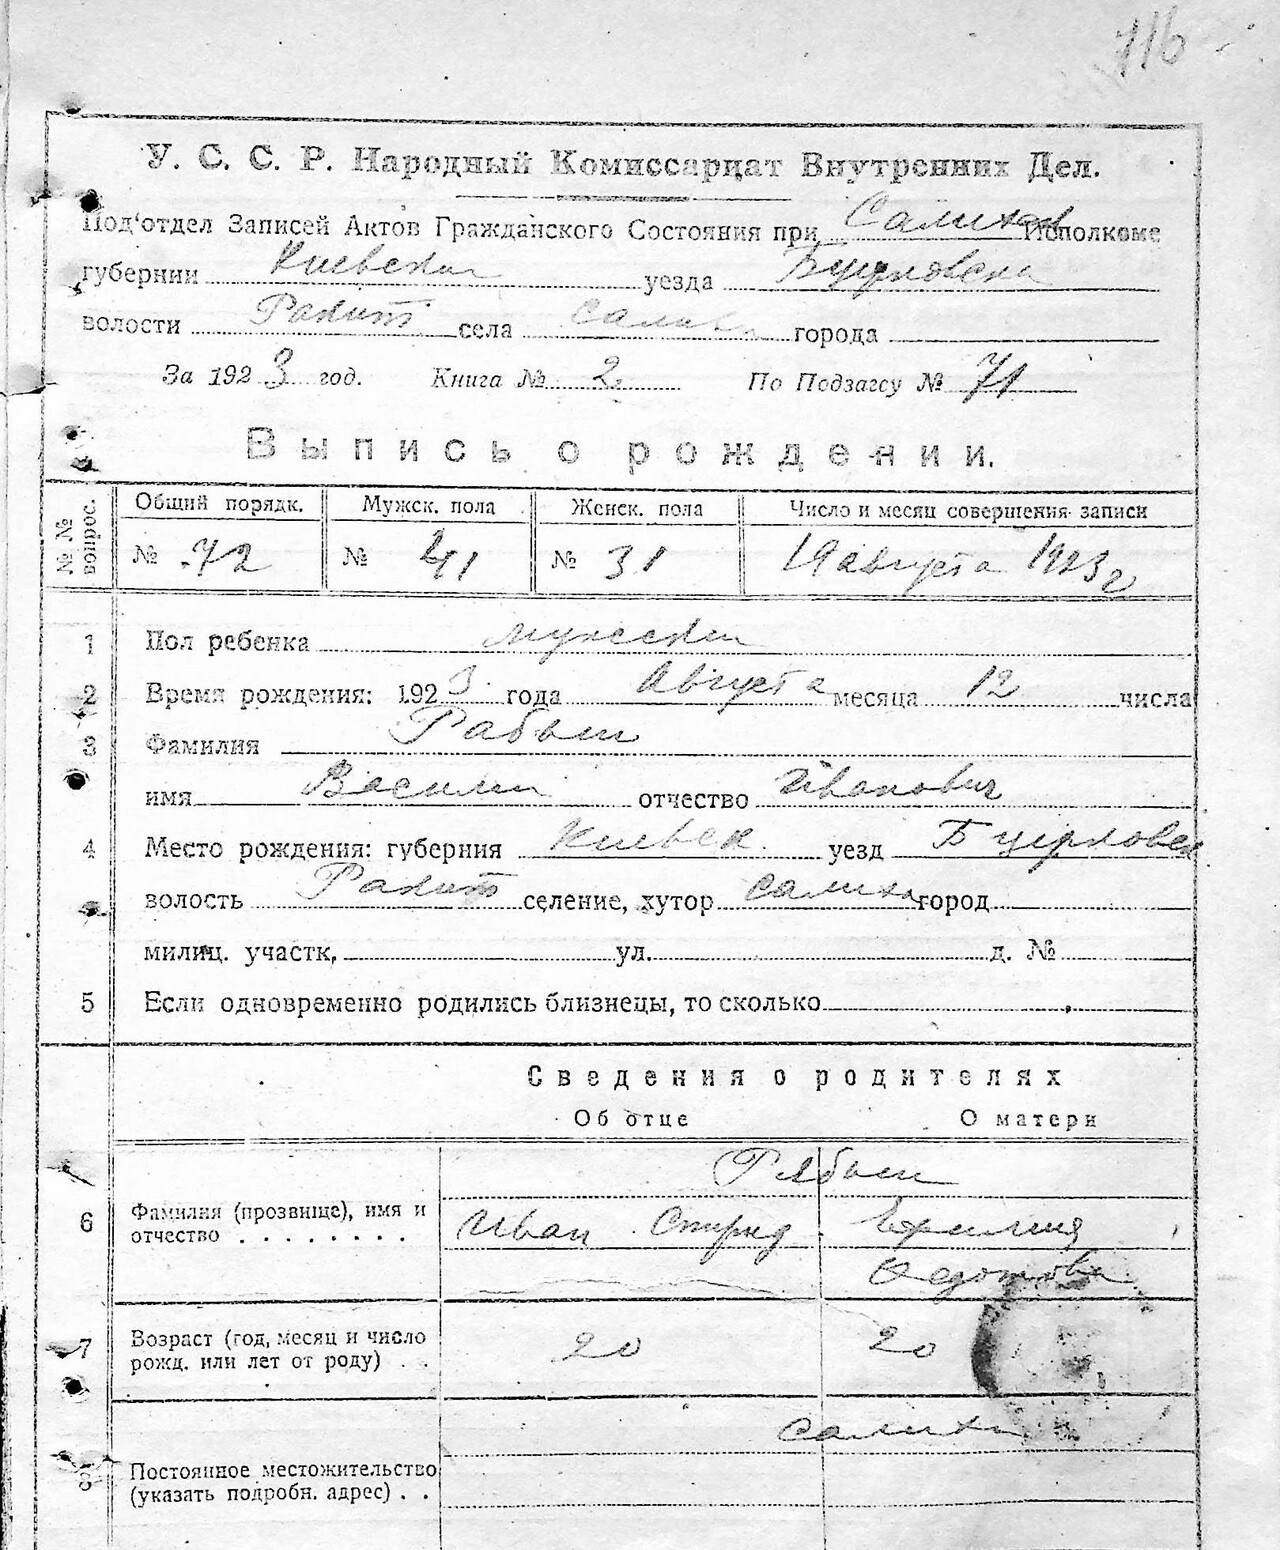 716
У. С. С. Р. Народный Комиссариат Внутренних Дел.
Под'отдел Записей Актов Гражданского Состояния при Салихск Исполкоме
губернии Киевская уезда Бугловска
волости Ракит села города
За 1923 год. Книга № 2 По Подзагсу № 71
Выпись о рождении.
№ № вопрос.
Общий порядк. Мужск. пола Женск. пола Число и месяц совершения записи
№ 72 № 41 № 31 19 августа 1923 г
1 Пол ребенка мужской
2 Время рождения: 1923 года Августа месяца 12 числа
3 Фамилия Рабый
имя Василий отчество Иванович
4 Место рождения: губерния Киевск уезд
волость Ракит селение, хутор город
милиц. участк. ул. д. №
5 Если одновременно родились близнецы, то сколько
Сведения о родителях
Об отце О матери
Рябый
6 Фамилия (прозвище), имя и
отчество Иван Спирид
Федотова
7 Возраст (год, месяц и число
рожд. или лет от роду) 20 20
8 Постоянное местожительство
(указать подробн. адрес)